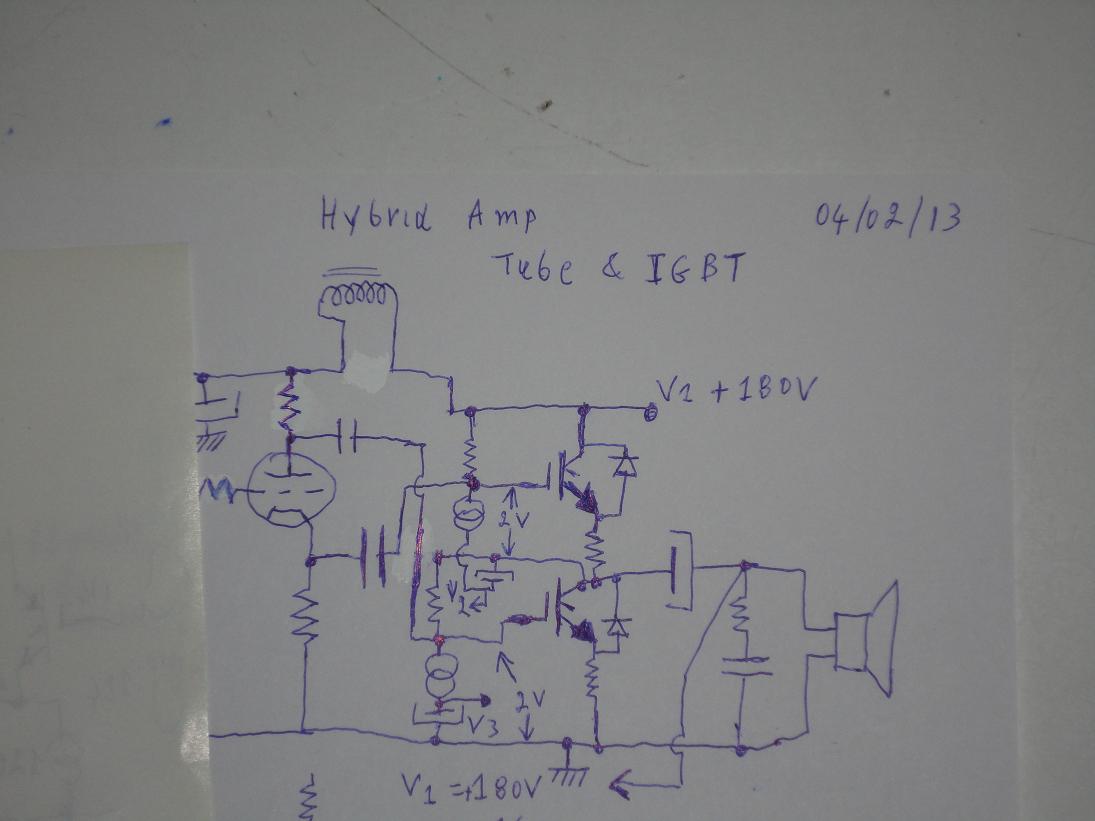 Hybrid Amp
04/02/13
Tube & IGBT
V1 +180V
2V
2
2V
V3
V1 =+180V